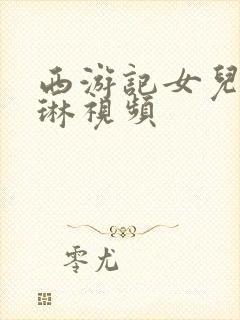 西游記女兒
琳視頻
零尤